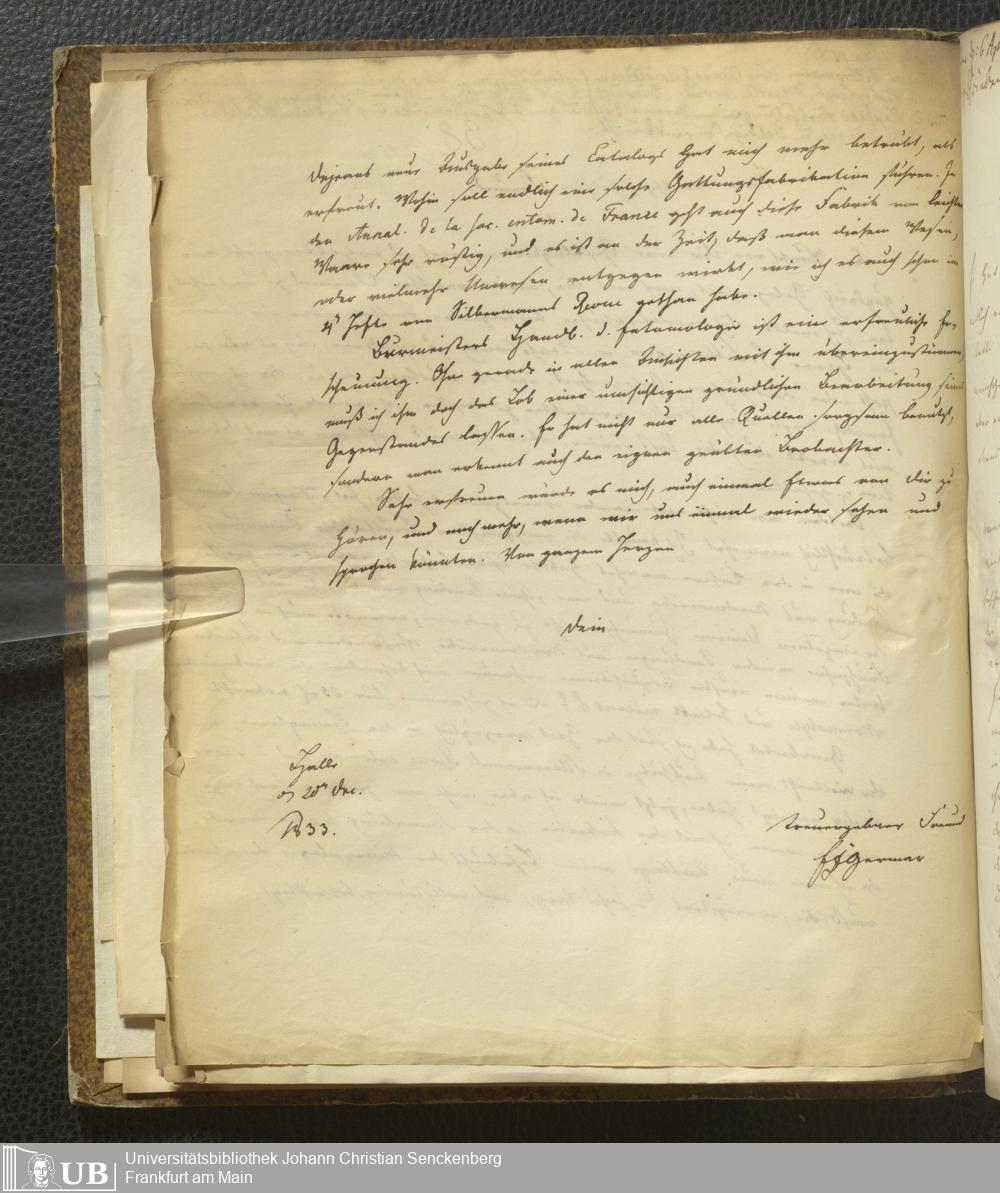 Dejeans neue Ausgabe seines Catalogs hat mich mehr betrübt, als
erfreut. Wohin soll endlich eine solche Gattungsfabrikation führen. In
den Annal. de la soc. entom. de France geht auch diese Fabrik von leichter
Waare sehr rüstig, und es ist an der Zeit, daß man diesem Wesen,
oder vielmehr Unwesen entgegen wirkt, wie ich es auch schon im
Hefte von Silbermanns Revue gethan habe.
Burmeisters Handb. d. Entomologie ist eine erfreuliche Er-
scheinung. Ohne gerade in allen Ansichten mit ihm übereinzustimmen
muß ich ihm doch das Lob einer umsichtigen gründlichen Bearbeitung seines
Gegenstandes lassen. Er hat nicht nur alle Quellen sorgsam benutzt,
sondern man erkennt auch den eignen geübten Beobachter.
Sehr erfreuen würde es mich, auch einmal Etwas von Dir zu
hören, und noch mehr, wenn wir uns einmal wieder sehen und
sprechen könnten. Von ganzem Herzen
Dein
Halle
20 Dec.
1833.
treuergebner Freund
Germar
UB
Universitätsbibliothek Johann Christian Senckenberg
Frankfurt am Main